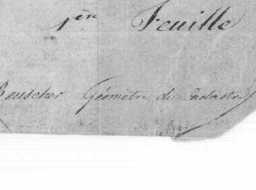 1ère Feuille
Bouscher Géomètre du Cadastre